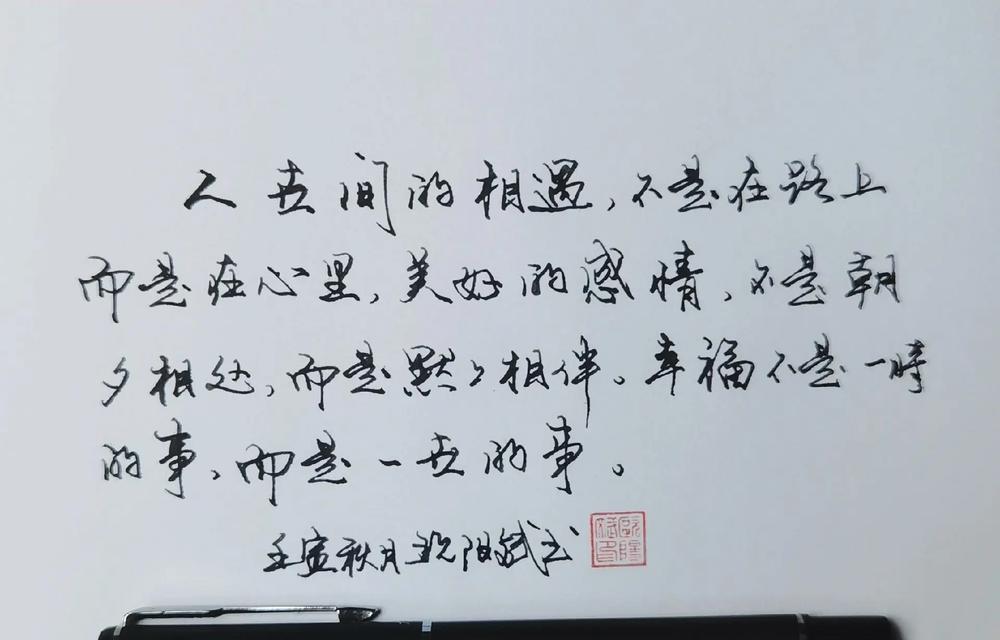 人世间的相遇，不是在路上
而是在心里，美好的感情，不是朝
夕相处，而是默々相伴。幸福不是一时
的事，而是一世的事。
壬寅秋月欧阳斌书